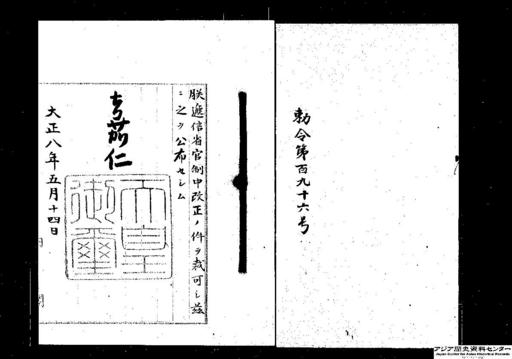 勅令第百九十六号
朕逓信省官制中改正ノ件ヲ裁可シ茲
ニ之ヲ公布セシム
嘉仁
天皇
御璽
大正八年五月十四日
アジア歴史資料センター
Japan Center for Asian Historical Records